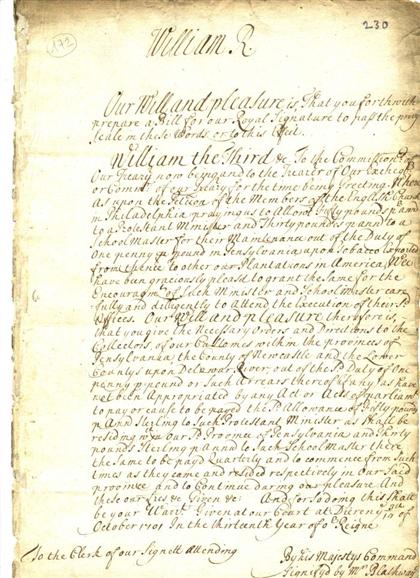 172
230
William R
Our Will and pleasure is, That you forthwith
prepare a Bill for our Royal Signature to pass the privy
Seale in these Words or to this Effect.
William the Third &c To the Commission.rs
Our Treasy now being and to the Treãer of Our Excheq.r
or Comm.rs of our Treãsy for the time being Greeting. Wh
as upon the Petition of the Members of the English Church
in Philadelphia praying us to Allow Fifty pounds p annũ
to a Protestant Minister and Thirty pounds p annũ to a
School Master for their Maintenance out of the Duty of
One penny p pound in Pensylvania upon Tobacco Exported
from thence to other our Plantations in America, Wee
have been graciously pleas'd to grant the Same for the
Encouragm.t of Such Minister and School Master care
fully and diligently to attend the Execution of their S.d
Offices. Our Will and pleasure therefore is,
that you give the Necessary Orders and Directions to the
Collectors, of our Customes within the provinces of
Pensylvania, the County of Newcastle and the Lower
Countys upon Delawar River, out of the S.d Duty of One
penny p pound or Such Arrears thereof if any as have
not been Appropriated by any Act or Acts of parliam.t
to pay or cause to be payed the S.d Allowance of Fifty pound
p Ann Sterling to Such Protestant Minister as Shall be
residing w.th Our S.d Province of Pensylvania and Thirty
pounds Sterling p Annũ to Such School Master there
the Same to be payd Quarterly and to commence from Such
times as they come and reside respectively in Our Said
province and to Continue during our pleasure And
these our Lres &c Given &c: And for So doing this Shall
be your Warr.t Given at our Court at Dieren y.e
October 1701 In the Thirteenth Year of O.r Reigne
To the Clerk of our Signett attending
By his Majestys Command
Signifyd by M.r Blathwayt